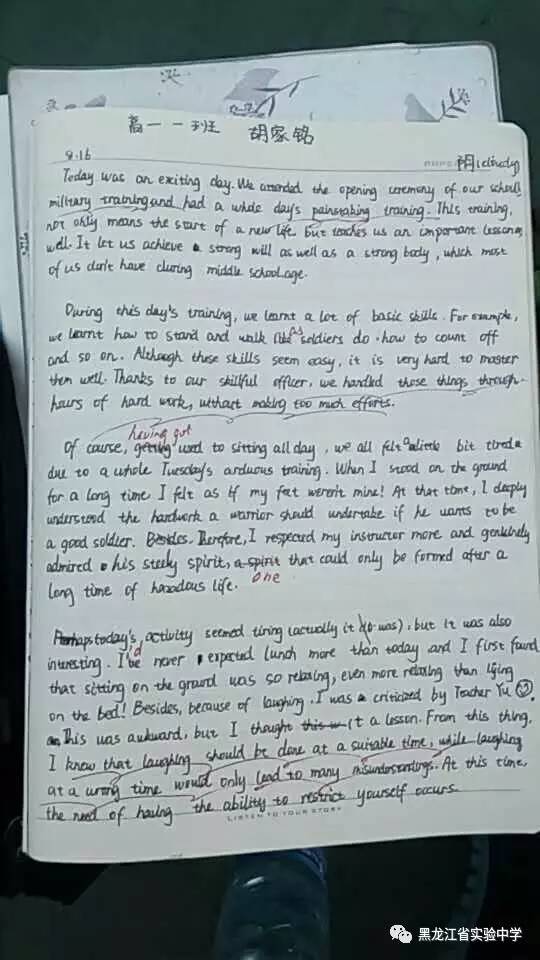 高一一班 胡家铭
8.16
Today was an exciting day. We attended the opening ceremony of our school
military training and had a whole day's painstaking training. This training,
not only means the start of a new life but teaches us an important lesson as
well. It let us achieve a strong will as well as a strong body, which most
of us don't have during middle school age.
During this day's training, we learnt a lot of basic skills. For example,
we learnt how to stand and walk like as soldiers do. how to count off
and so on. Although these skills seem easy, it is very hard to master
them well. Thanks to our skillful officer, we handled those things through
hours of hard work, without making too much efforts.
having got
Of course, getting used to sitting all day, we all felt a little bit tired
due to a whole Tuesday's arduous training. When I stood on the ground
for a long time, I felt as if my feet weren't mine! At that time, I deeply
understood the hardwork a warrior should undertake if he wants to be
a good soldier. Besides. Therefore, I respected my instructor more and genuinely
admired his steely spirit, a spirit that could only be formed after a
one
long time of hazadous life.
Perhaps today's activity seemed tiring (actually it was), but it was also
interesting. I'd never expected lunch more than today and I first found
that sitting on the ground was so relaxing, even more relaxing than lying
on the bed! Besides, because of laughing. I was criticized by Teacher Yu
This was awkward, but I thought it a lesson. From this thing,
I know that laughing should be done at a suitable time, while laughing
at a wrong time would only lead to many misunderstandings. At this time,
the need of having the ability to restrict yourself occurs.
LISTEN TO YOUR STORY
黑龙江省实验中学